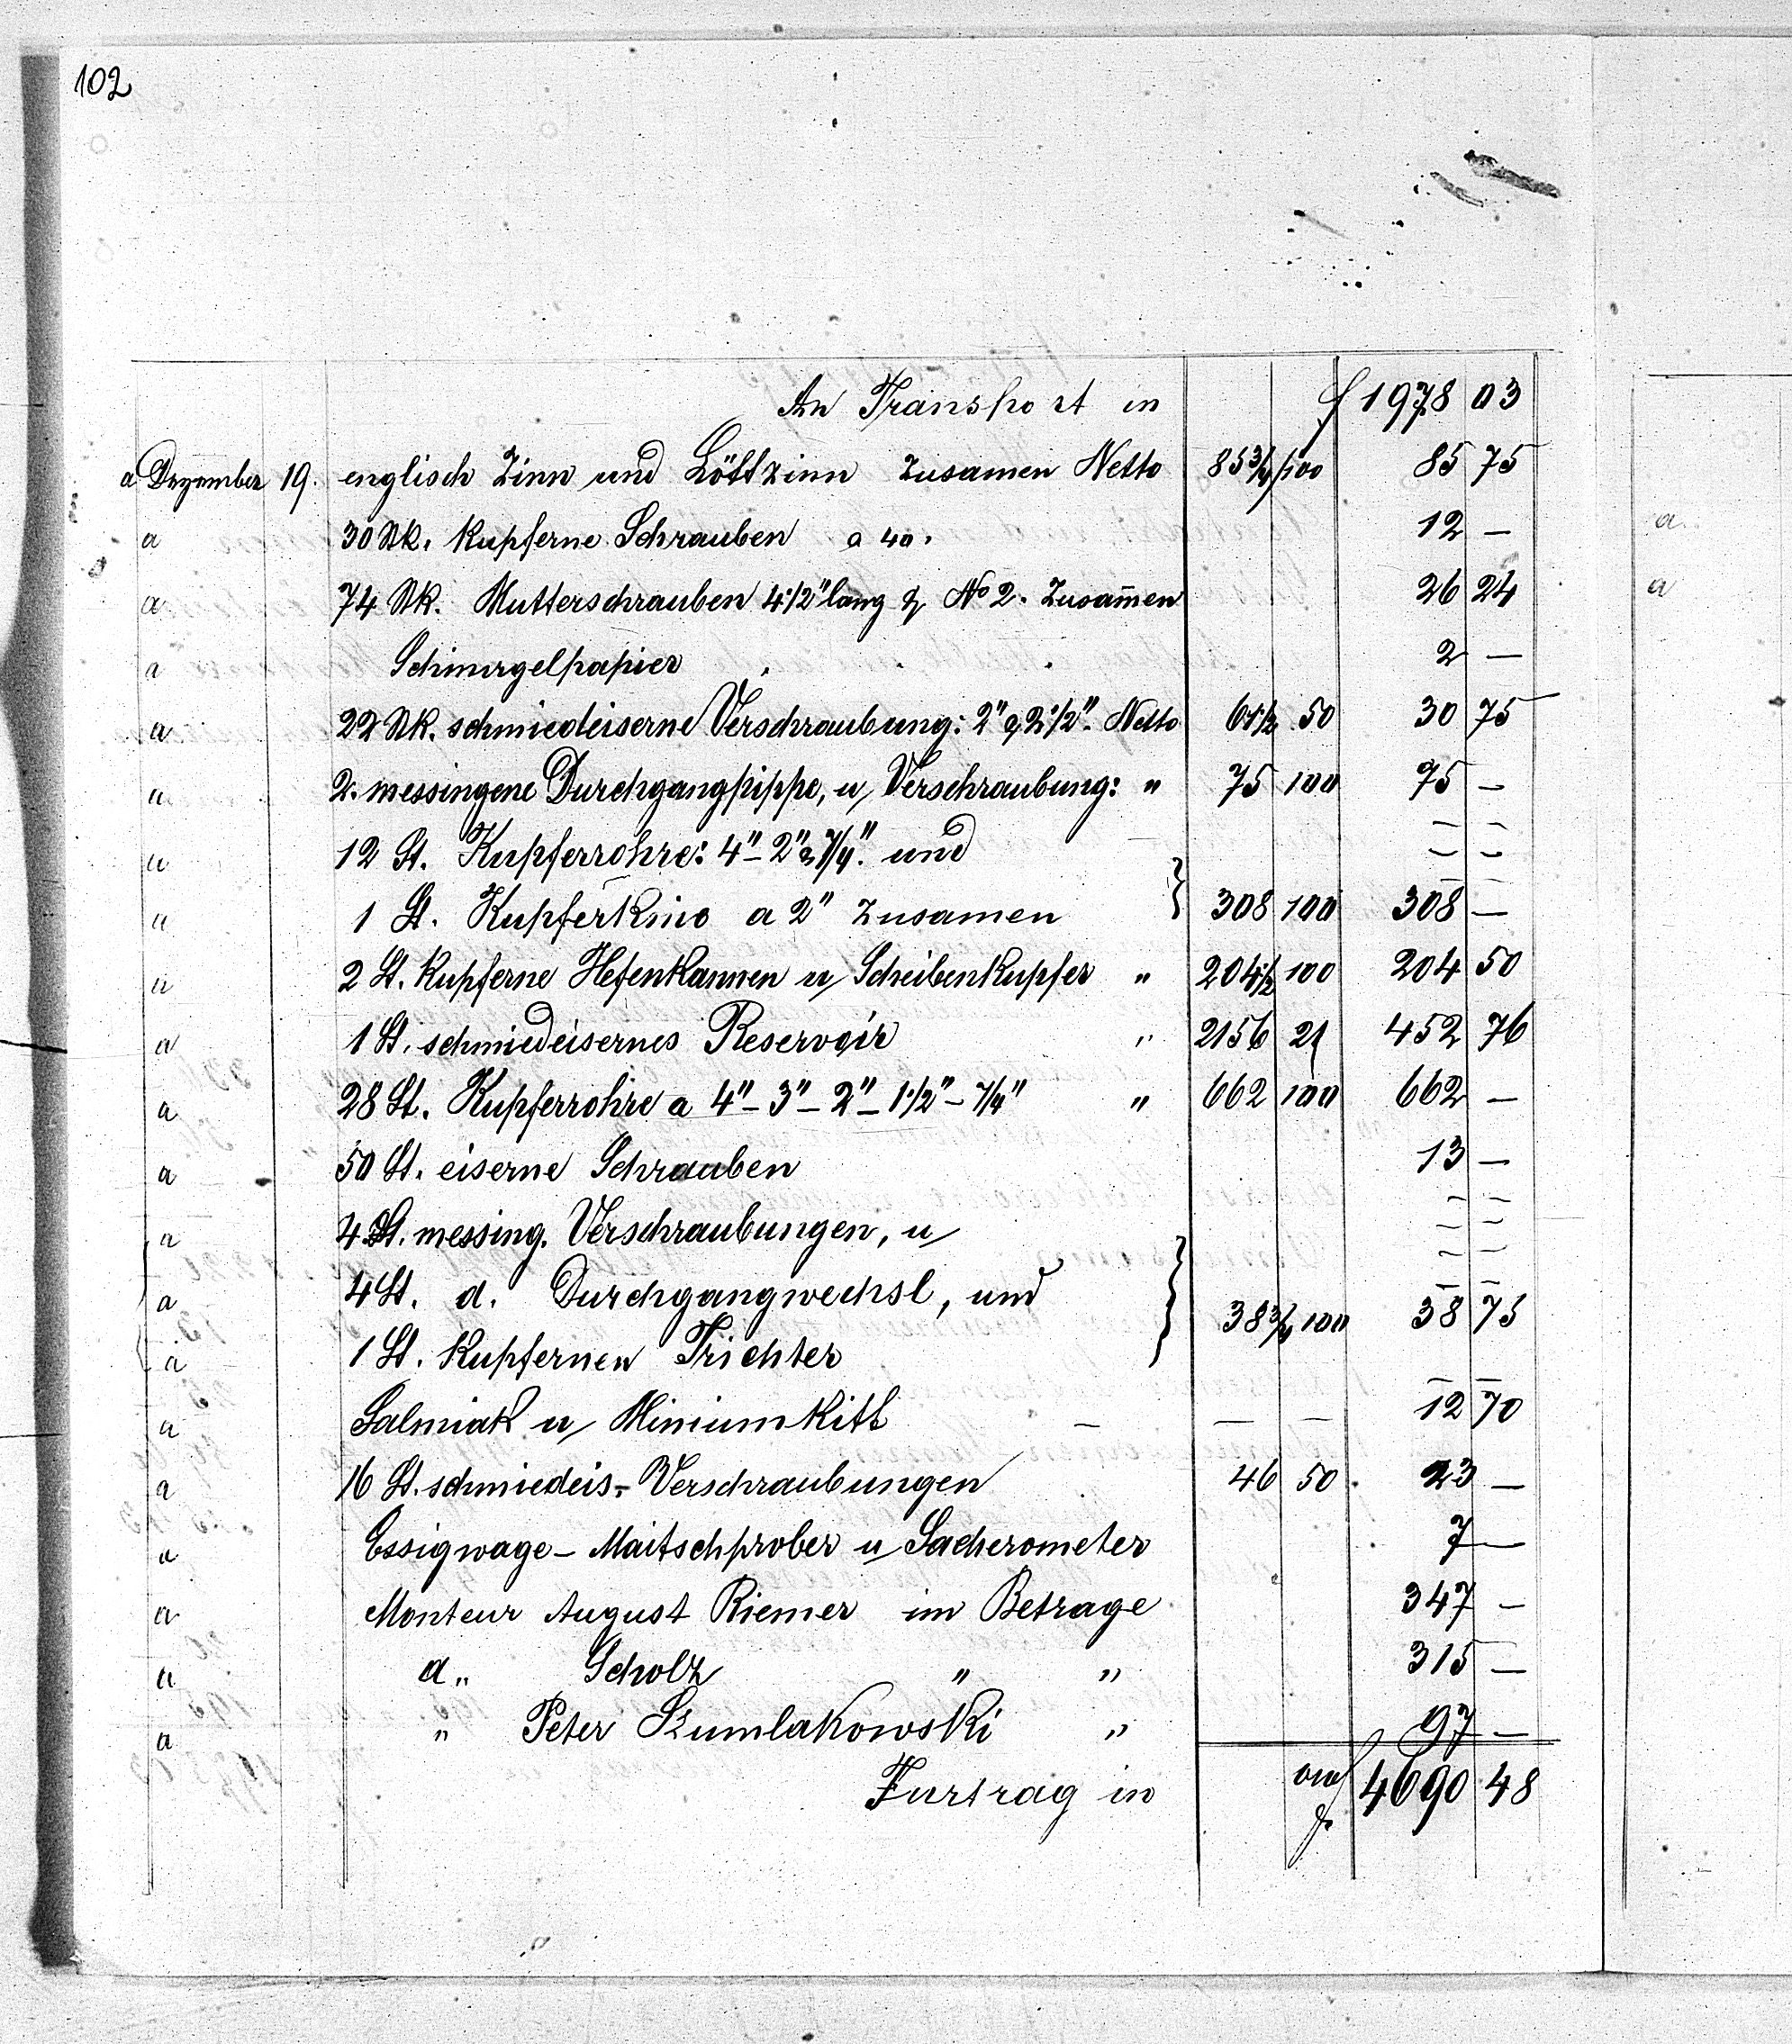 102
An Transport in f 1978 03
a Dezember 19. englisch Zinn und Löttzinn zusamen Netto 85 3/4 100 85 75
a 30 Stk. Kupferne Schrauben a 40. 12 —
a 74 Stk. Mutterschrauben 4 1/2" lang & No 2. Zusam̄en 26 24
a Schmirgelpapier 2 —
a 22 Stk. schmiedeiserne Verschraubung: 2" & 2 1/2". Netto 61 1/2 50 30 75
a 2. messingene Durchgangpippe, u Verschraubung: " 75 100 75 —
a 12 St. Kupferrohre: 4" - 2" & 7/4". und — —
a 1 St. Kupferknio a 2" zusamen } 308 100 308 —
a 2 St. Kupferne Hefenkannen u Scheibenkupfer " 204 1/2 100 204 50
a 1 St. schmiedeisernes Reservoir " 2156 21 452 76
a 28 St. Kupferrohre a 4" - 3" - 2" - 1 1/2" - 7/4" " 662 100 662 —
a 50 St. eiserne Schrauben 13 —
a 4 St. messing. Verschraubungen, u — —
a 4 St. d. Durchgangwechsl, und } 38 3/4 100 38 75
a 1 St. Kupfernen Trichter
a Salmiak u Miniumkitt — — — 12 70
a 16 St. schmiedeis- Verschraubungen 46 50 23 —
a Essigwage - Maitschprober u Sacherometer 7 —
a Monteur August Riemer im Betrage 347 —
a d" Scholz " " 315 —
a " Peter Szumlakowski " 97 —
Furtrag in f 4690 48
a
a